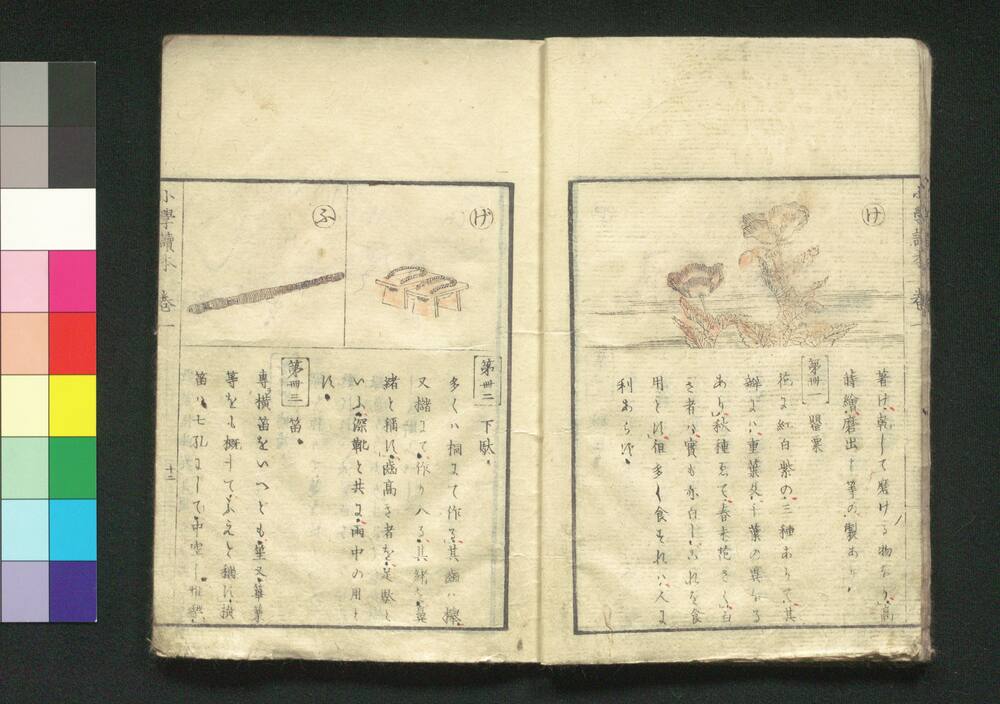 小學讀本 巻一
け
著け乾して磨ける物なり高
蒔繪磨出し等の製あり
第卅一 罌粟
花は紅白紫の三種ありて其
瓣は重葉千葉の異なる
あり秋種ゑて春花さく白
き者は實も亦白しこれを食
用とは但多く食それハ人に
利あらず
げ
ふ
第卅二 下駄
多くハ桐にて作る其齒ハ
又檞にて作りハる其緒を鼻
緒と稱は齒高き者を足駄と
いふ深靴と共に雨中の用と
は
第卅三 笛
專横笛をいへども笙又篳篥
等をも概してふえと稱は横
笛は七孔にして中空し
小學讀本 巻一
十二